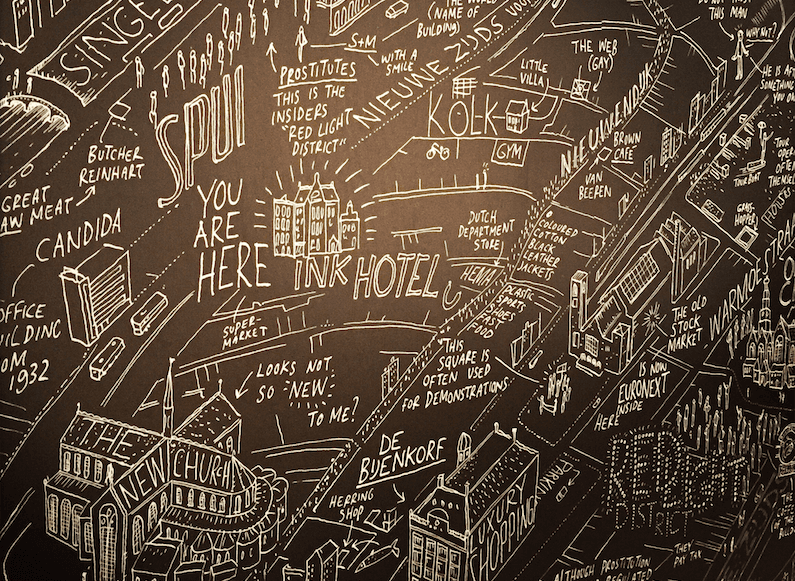 THE WORLD
(NAME OF
BUILDING)
THIS MAN
WHY NOT?
SINGEL
S+M
WITH A
SMILE
NIEUWE ZIJDS
PROSTITUTES
THIS IS THE
INSIDERS
"RED LIGHT
DISTRICT"
SPUI
THE WEB
(GAY)
LITTLE
VILLA
KOLK
GYM
NIEUWENDIJK
BROWN
CAFÉ
VAN
BEEREN
HE IS
SOMETHING
TOUR
OFTEN
TOURBOAT
GRASS-
HOPPER
BUTCHER
REINHART
GREAT
RAW MEAT
YOU
ARE
HERE
INK HOTEL
CANDIDA
OFFICE
BUILDING
FROM
1932
DUTCH
DEPARTMENT
STORE
HEMA
COLOURED
COTTON
BLACK
LEATHER
JACKETS
PLASTIC
SPORTS
SHOES
FAST
FOOD
SUPER-
MARKET
THIS
SQUARE IS
OFTEN USED
FOR DEMONSTRATIONS
THE OLD
STOCK
MARKET
IS NOW
EURONEXT
HERE INSIDE
LOOKS NOT
SO "NEW"
TO ME?
THE
NEW CHURCH
DE
BIJENKORF
HERRING
SHOP
LUXURY
SHOPPING
PARKING
RED LIGHT
DISTRICT
THEY
PAY TAX
ALTHOUGH PROSTITUTION